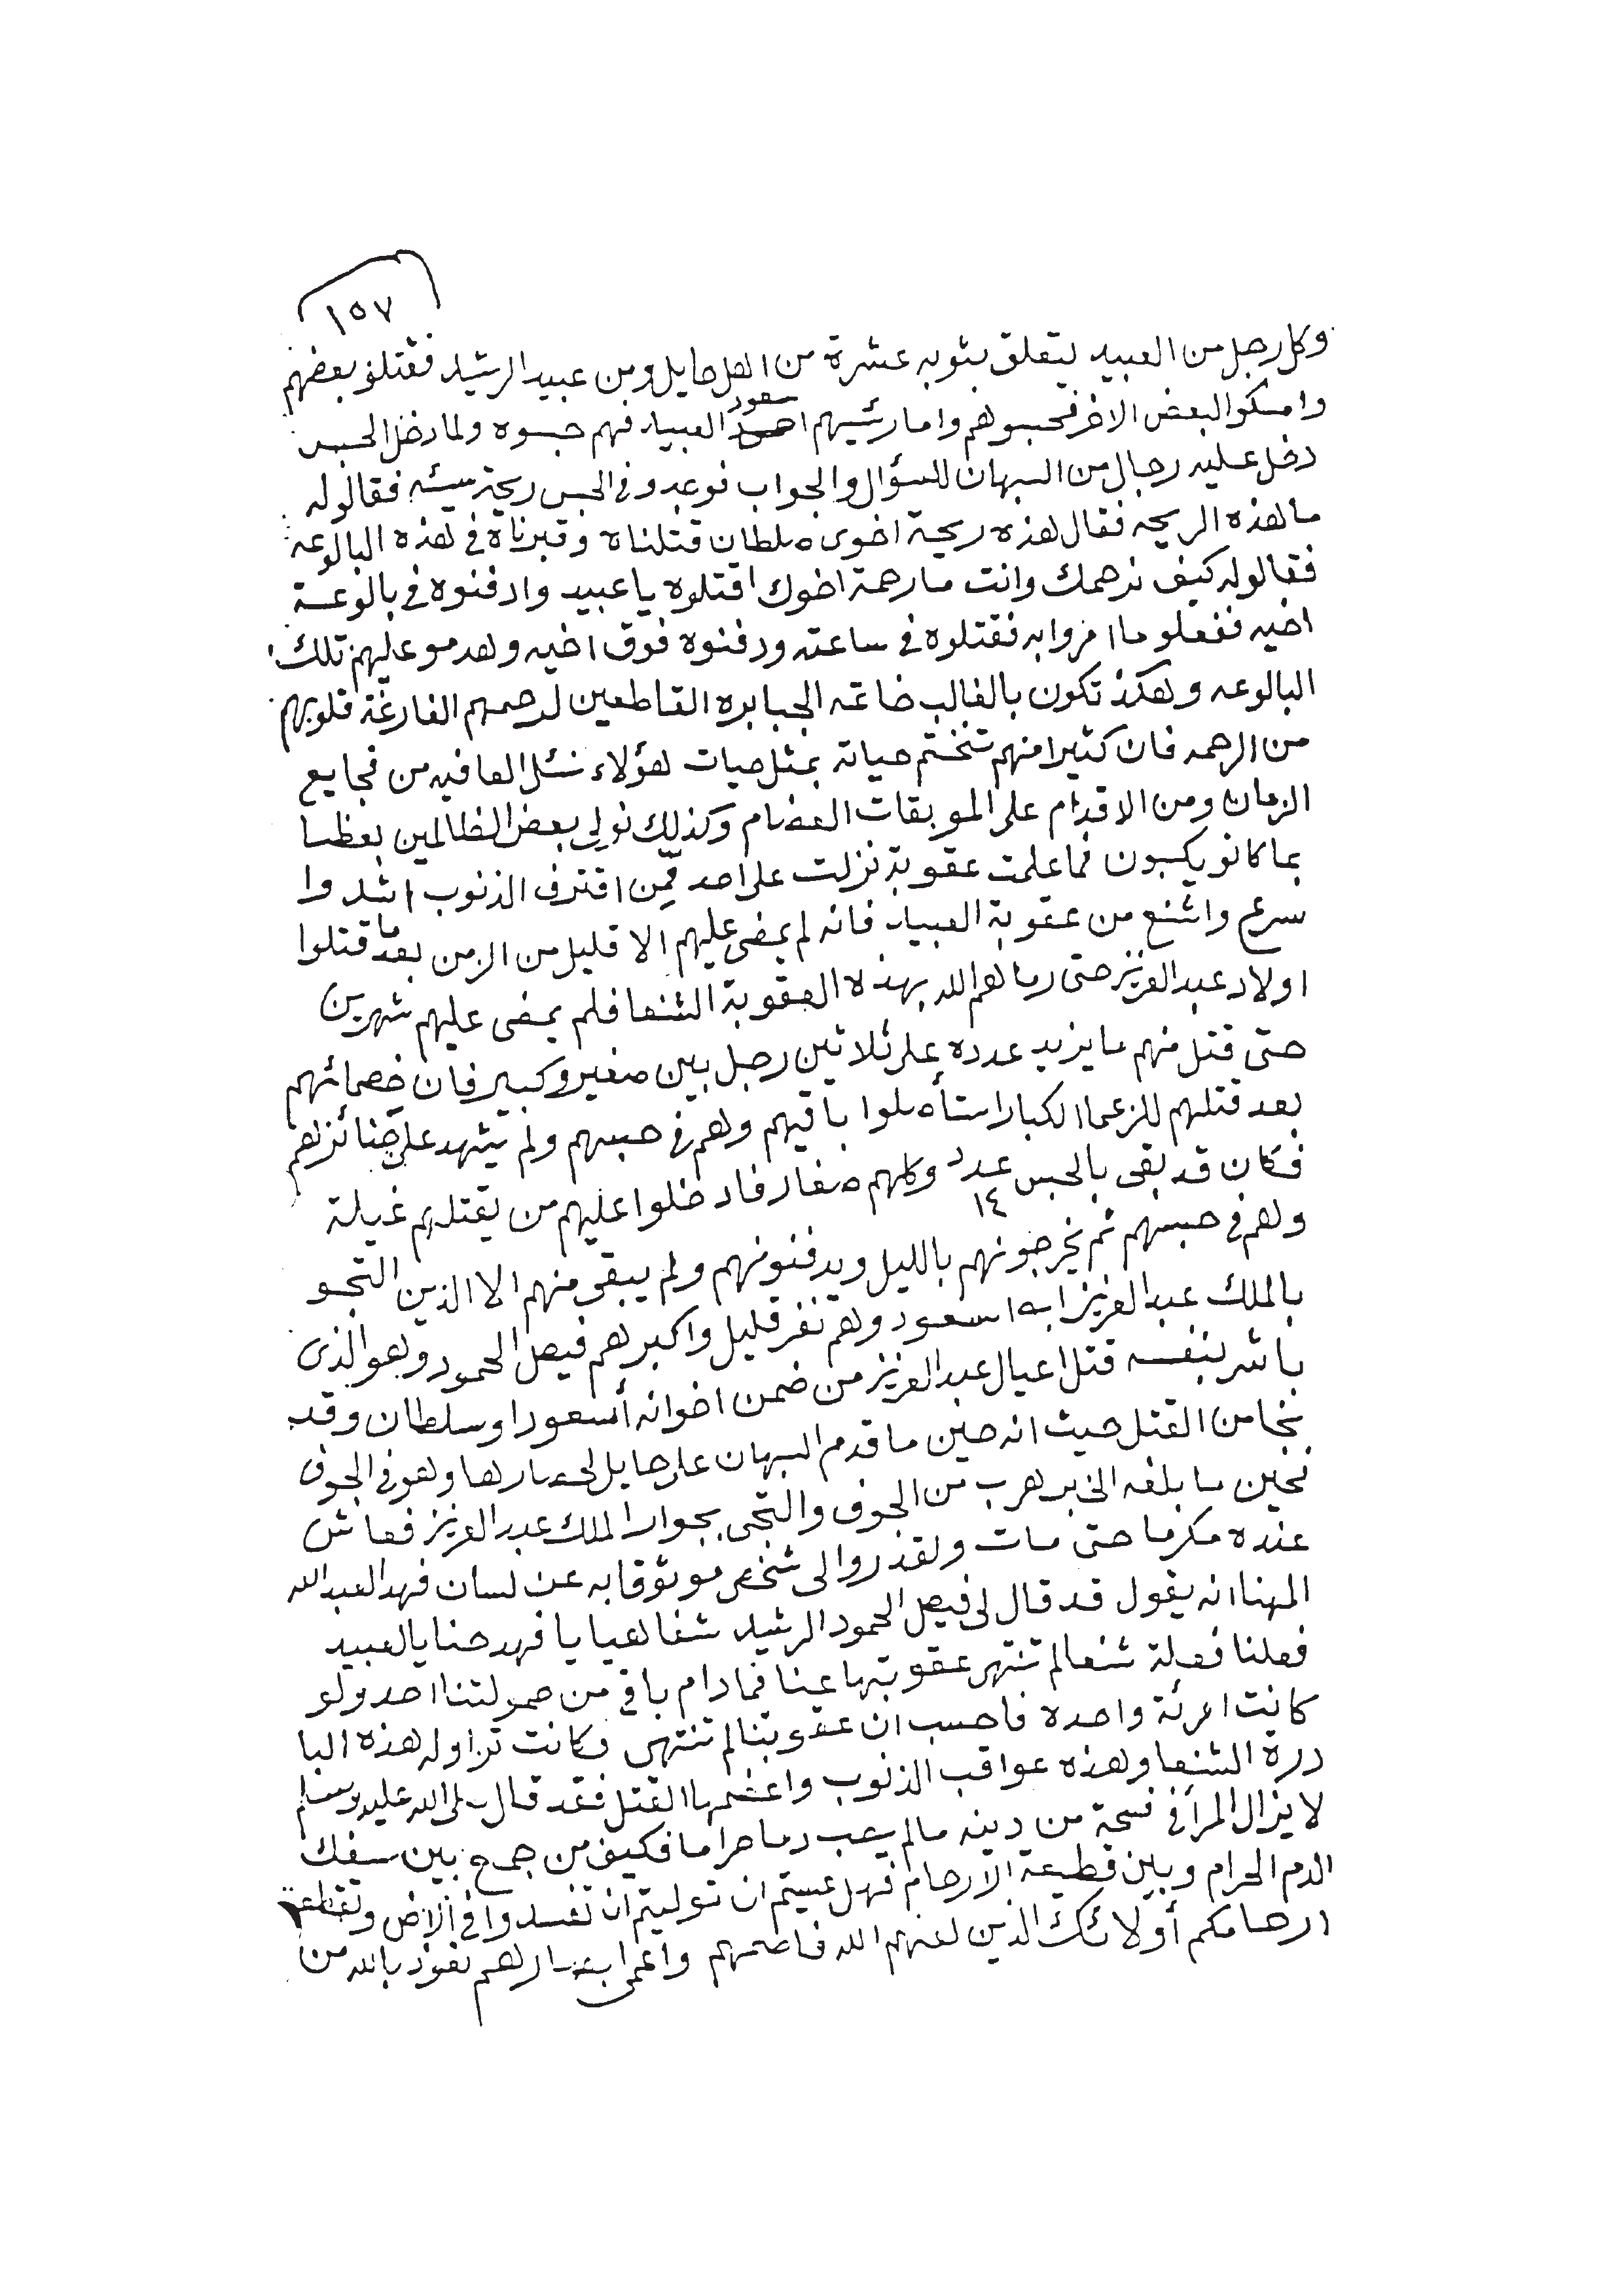 ١٥٧
وكل رجل من العبيد ليتعلق بثوبه عشرة من اهل حايل ومن عبيد الرشيد فقتلو بعضهم
وامسكوا البعض الاخر فحبسوهم واما رئسيهم سعود العبيد فهم حبسوه ولما دخل الحبس
دخل عليه رجال من السبهان للسؤال والجواب فوجدو في الحبس ريحة سيئه فقالو له
ما هذه الريحه فقال هذه ريحة اخوي سلطان قتلناه وقبرناه في هذه البالوعه
فقالو له كيف نرحمك وانت ما رحمة اخوك اقتلوه يا عبيد وادفنوه في بالوعة
اخيه ففعلو ما امروا به فقتلوه في ساعته ودفنوه فوق اخيه وهدمو عليهم تلك
البالوعه وهكذ تكون بالغالب خاتمه الجبابره القاطعين لرحمهم الفارغة قلوبهم
من الرحمه فان كثيرا منهم تنختم حياته بمثل حيات هؤلاء نسئل العافيه من فجايع
الزمان ومن الاقدام على الموبقات العضام وكذلك نولي بعض الظالمين بعظا
بما كانو يكسبون فما علمت عقوبة نزلت على احد ممن اقترف الذنوب اشد وا
سرع واشنع من عقوبة العبيد فانه لم يمضى عليهم الا قليل من الزمن بعد ما قتلوا
اولاد عبد العزيز حتى رماهم الله بهذه العقوبة الشنعا فلم يمضى عليهم شهرين
حتى قتل منهم ما يزيد عدده على ثلاثين رجل بين صغير وكبير فان خصمائهم
بعد قتلهم للزعما الكبار استأصلوا باقيهم وهم في حبسهم ولم يشهد على جنائزهم
فكان قد بقى بالحبس عدد ١٤ وكلهم صغار فادخلوا عليهم من يقتلهم غيلة
وهم في حبسهم ثم يخرجونهم بالليل ويدفنونهم ولم يبقى منهم الا الذين التجو
بالملك عبد العزيز ابن اسعود وهم نفر قليل واكبرهم فيصل الحمود وهو الذى
باشر بنفسه قتل اعيال عبد العزيز من ضمن اخوانه أسعود وسلطان وقد
نجا من القتل حيث انه حين ما قدم السبهان على حايل لحصارها وهو في الجوف
نحين ما بلغه الخبر هرب من الجوف والتجى بجوار الملك عبد العزيز فعاش
عنده مكرما حتى مات ولقد روا لى شخص موثوقا به عن لسان فهد العبد الله
المهنا انه يقول قد قال لى فيصل الحمود الرشيد شفاهيا يا فهد حنا يالعبيد
فعلنا فعلة شنعا لم تنتهى عقوبتها عنا فما دام باقي من حمولتنا احد ولو
كانت امرئة واحده فاحسب ان عقوبتنا لم تنتهى وكانت تزاوله هذه البا
درة الشنعا وهذه عواقب الذنوب واعضمها القتل فقد قال صلى الله عليه وسلم
لا يزال المرأ في فسحة من دينه مالم يصب دما حراما فكيف من جمع بين سفك
الدم الحرام وبين قطيعة الارحام فهل عسيتم ان توليتم ان تفسدوا في الارض وتقطعو
ارحامكم أولائك الذين لعنهم الله فاصمهم واعمى ابصارهم نعوذ بالله من